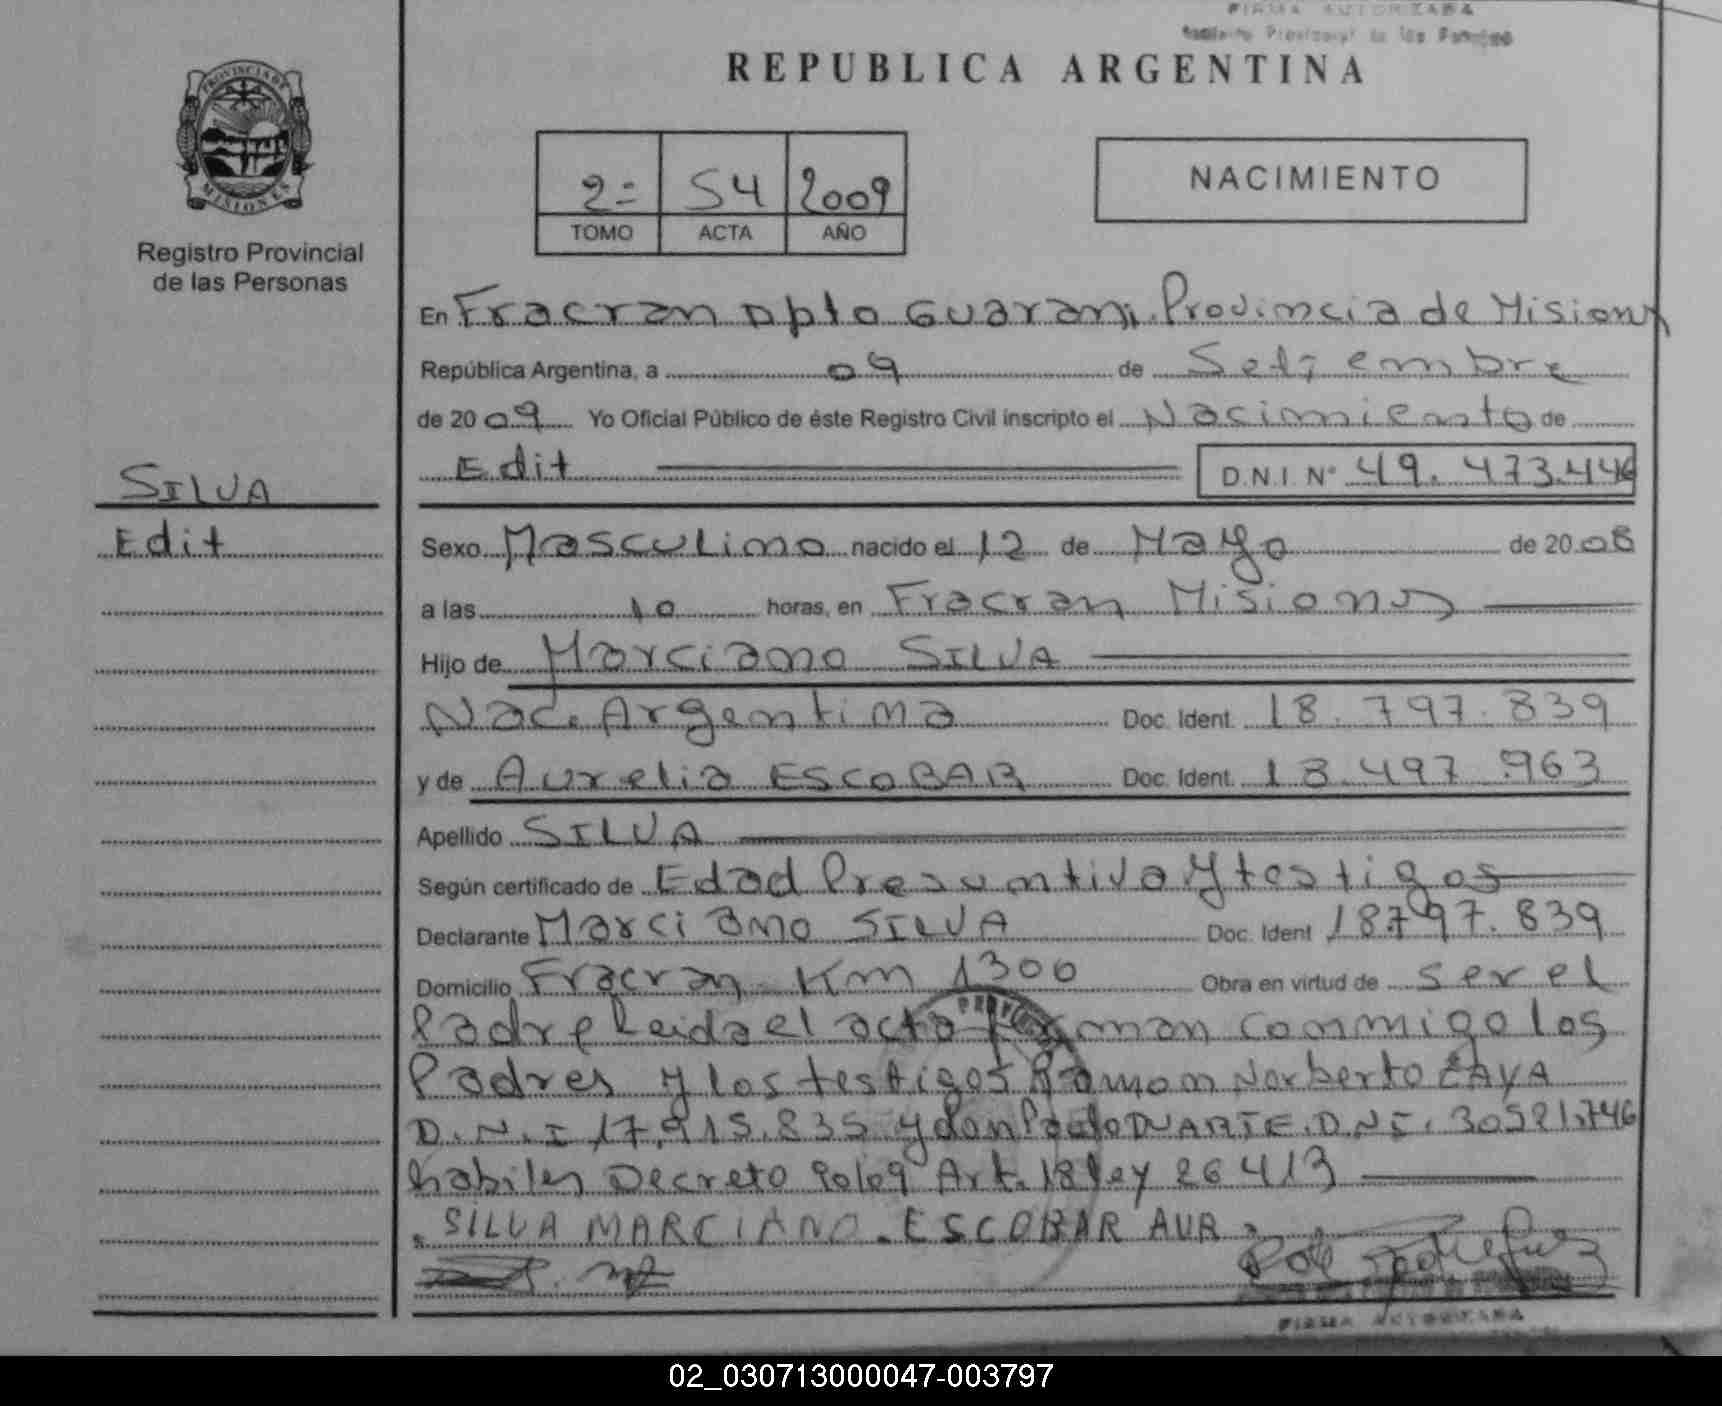 FIRMA AUTORIZADA
Registro Provincial de las Personas
REPUBLICA ARGENTINA
PROVINCIA DE
MISIONES
Registro Provincial
de las Personas
2= 54 2009
TOMO ACTA AÑO
NACIMIENTO
En Fracran Dpto Guarani Provincia de Misiones
República Argentina, a 09 de Setiembre
de 2009 Yo Oficial Público de éste Registro Civil inscripto el Nacimiento de
Edit D.N.I. Nº 49.473.446
SILVA
Edit
Sexo Masculino nacido el 12 de Mayo de 2008
a las 10 horas, en Fracran Misiones
Hijo de Marciano SILVA
Nac. Argentina Doc. Ident. 18.797.839
y de Aurelia ESCOBAR Doc. Ident. 18.497.963
Apellido SILVA
Según certificado de Edad Presuntiva y testigos
Declarante Marciano SILVA Doc. Ident 18.797.839
Domicilio Fracran Km 1300 Obra en virtud de ser el
Padre Leida el acta Firman conmigo los
Padres y los testigos Ramon Norberto ZAYA
D.N.I 17.915.835 y don DUARTE. D.N.I. 30521.746
habiles Decreto 90/09 Art. 18 ley 26413
SILVA MARCIANO. ESCOBAR AUR
FIRMA AUTORIZADA
02_030713000047-003797